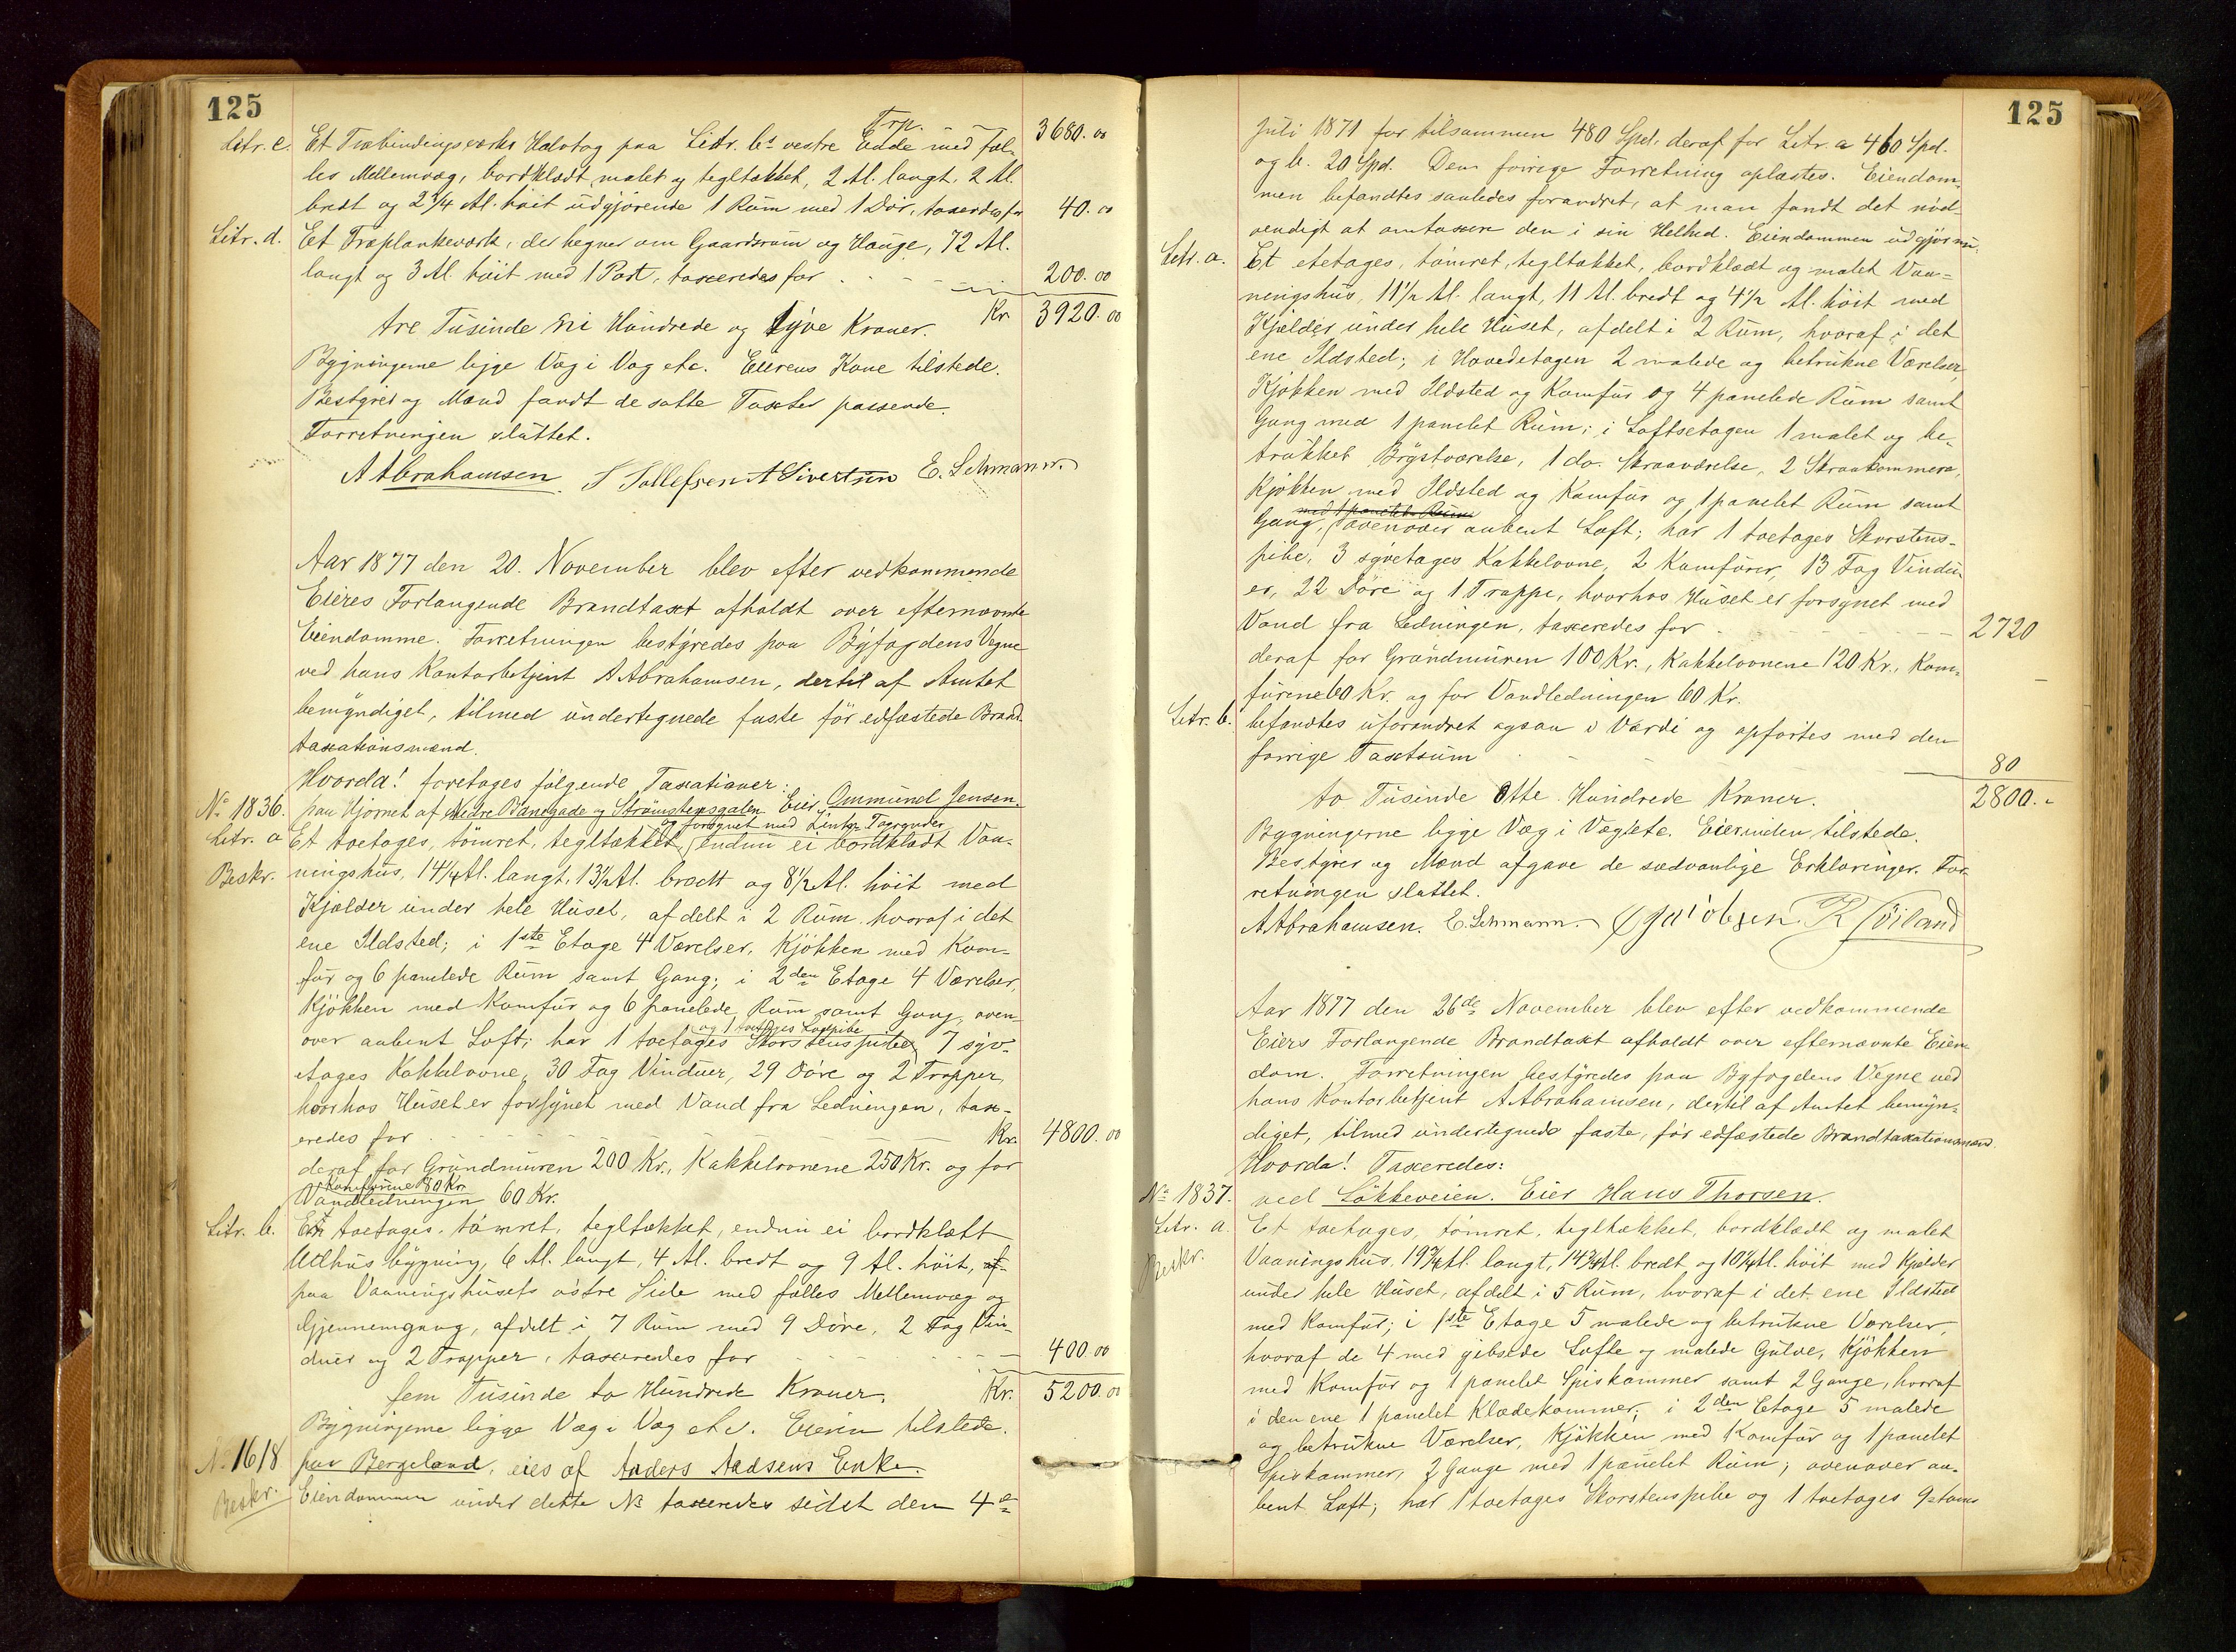 125
Trp. 3680.00
Litr. c. Et Træbindingsværks Halvtag paa Litr. bs vestre Ende med fæl-
les Mellemvæg, bordklædt, malet og tegltækket, 2 Al. langt, 2 Al.
bredt og 2 3/4 Al. höit udgjörende 1 Rum med 1 Dör, taxeredes for 40.00
Litr. d. Et Træplankeværk, der hegner om Gaardsrum og Hauge, 72 Al.
langt og 3 Al. höit med 1 Port, taxeredes for 200.00
tre Tusinde Ni Hundrede og tyve Kroner. Kr. 3920.00
Bygningerne ligge Væg i Væg etc. Eierens Kone tilstede.
Bestyrer og Mænd fandt de satte Taxter passende.
Forretningen sluttet.
A Abrahamsen. T Tollefsen A Sivertsen E. Lehmann.
Aar 1877 den 20. November blev efter vedkommende
Eieres Forlangende Brandtaxt afholdt over efternævnte
Eiendomme. Forretningen bestyredes paa Byfogdens Vegne
ved hans Kontorbetjent A Abrahamsen, dertil af Amtet
bemyndiget, tilmed undertegnede faste för edfæstede Brand-
taxationsmænd.
Hvorda! foretoges fölgende Taxationer:
No 1836. paa Hjörnet af Nedre Banegade og Strömsteensgaten Eier Ommund Jensen.
og forsynet med Zinks Tagrender
Litr. a Et toetages, tömret, tegltækket, endnu ei bordklædt Vaa-
Beskr. ningshus, 14 1/4 Al. langt, 13 1/2 Al. bredt og 8 1/2 Al. höit med
Kjælder under hele Huset, afdelt i 2 Rum hvoraf i det
ene Ildsted; i 1ste Etage 4 Værelser, Kjökken med Kom-
fur og 6 panelede Rum samt Gang; i 2den Etage 4 Værelser,
Kjökken med Komfur og 6 panelede Rum samt Gang, oven-
og 1 toetages Luftpibe
over aabent Loft; har 1 toetages Skorstenspibe, 7 syv-
etages Kakkelovne, 30 Fag Vinduer, 29 Döre og 2 Trapper
hvorhos Huset er forsynet med Vand fra Ledningen, tax-
eredes for Kr. 4800.00
deraf for Grundmuren 200 Kr., Kakkelovnene 250 Kr. og for
Komfurene 80 Kr
Vandledningen 60 Kr.
Litr. b. Et toetages, tömret, tegltækket, endnu ei bordklætt
Udhusbygning, 6 Al. langt, 4 Al. bredt og 9 Al. höit,
paa Vaaningshusets östre Side med fælles Mellemvæg og
Gjennemgang, afdelt i 7 Rum med 9 Döre, 2 Fag Vin-
duer og 2 Trapper, taxeredes for 400.00
fem Tusinde to Hundrede Kroner. Kr. 5200.00
Bygningerne ligge Væg i Væg etc. Eieren tilstede.
No 1618 paa Bergeland, eies af Anders Aadsens Enke.
Beskr. Eiendommen under dette No taxeredes sidst den 4de
125
Juli 1871 for tilsammen 480 Spd. deraf for Litr. a 460 Spd.
og b. 20 Spd. Den forrige Forretning oplæstes. Eiendom-
men befandtes saaledes forandret, at man fandt det nöd-
vendigt at omtaxere den i sin Helhed. Eiendommen udgjör nu:
Litr. a. Et etetages, tömret, tegltækket, bordklædt og malet Vaa-
ningshus, 11 1/2 Al. langt, 11 Al. bredt og 4 1/2 Al. höit med
Kjælder under hele Huset, afdelt i 2 Rum, hvoraf i det
ene Ildsted; i Hovedetagen 2 malede og betrukne Værelser,
Kjökken med Ildsted og Komfur og 4 panelede Rum samt
Gang med 1 panelet Rum; i Loftsetagen 1 malet og be-
trukket Brystværelse, 1 do. Skraaværelse, 2 Skraakommere,
Kjökken med Ildsted og Komfur og 1 panelet Rum samt
med 1 panelet Rum
Gang, ovenover aabent Loft; har 1 toetages Skorstens-
pibe, 3 syvetages Kakkelovne, 2 Komfurer, 13 Fag Vindu-
er, 22 Döre og 1 Trappe, hvorhos Huset er forsynet med
Vand fra Ledningen, taxeredes for 2720
deraf for Grundmuren 100 Kr., Kakkelovnene 120 Kr., Kom-
furene 60 Kr. og for Vandledningen 60 Kr.
Litr. b. befandtes uforandret ogsaa i Værdi og opförtes med den
forrige Taxtsum 80
to Tusinde Otte Hundrede Kroner. 2800.-
Bygningerne ligge Væg i Væg etc. Eierinden tilstede.
Bestyrer og Mænd afgave de sædvanlige Erklæringer. For-
retningen sluttet.
A Abrahamsen. E. Lehmann. Jacobsen.
Aar 1877 den 26de November blev efter vedkommende
Eiers Forlangende Brandtaxt afholdt over efternævnte Eien-
dom. Forretningen bestyredes paa Byfogdens Vegne ved
hans Kontorbetjent A Abrahamsen, dertil af Amtet bemyn-
diget, tilmed undertegnede faste, för edfæstede Brandtaxationsmænd.
Hvorda! Taxeredes:
No 1837. ved Lökkeveien. Eier Hans Thorsen.
Litr. a. Et toetages, tömret, tegltækket, bordklædt og malet
Beskr. Vaaningshus, 19 3/4 Al. langt, 14 3/4 Al. bredt og 10 1/4 Al. höit med Kjælder
under hele Huset, afdelt i 5 Rum, hvoraf i det ene Ildsted
med Komfur; i 1ste Etage 5 malede og betrukne Værelser,
hvoraf de 4 med gibsede Lofte og malede Gulve, Kjökken
med Komfur og 1 panelet Spiskammer samt 2 Gange, hvoraf
i den ene 1 panelet Klædekammer; i 2den Etage 5 malede
og betrukne Værelser, Kjökken med Komfur og 1 panelet
Spiskammer, 2 Gange med 1 panelet Rum; ovenover aa-
bent Loft; har 1 toetages Skorstenspibe og 1 toetages 9 toms